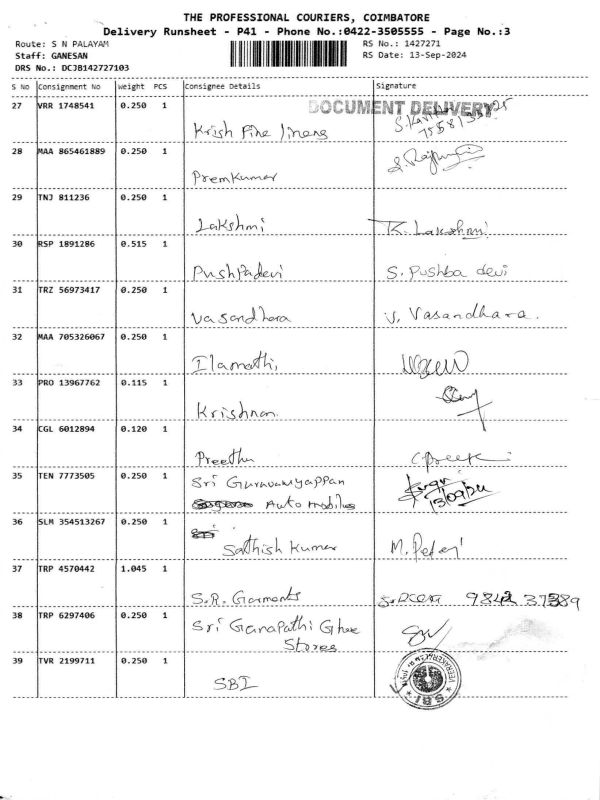 THE PROFESSIONAL COURIERS, COIMBATORE
Delivery Runsheet - P41 - Phone No.:0422-3505555 - Page No.:3
Route: S N PALAYAM
Staff: GANESAN
DRS No.: DCJB142727103
RS No.: 1427271
RS Date: 13-Sep-2024
S No Consignment No Weight PCS Consignee Details Signature
DOCUMENT DELIVERY
27 VRR 1748541 0.250 1
Krish Fine linens
28 MAA 865461889 0.250 1
Premkumar
29 TNJ 811236 0.250 1
Lakshmi K. Lakshmi
30 RSP 1891286 0.515 1
Pushpadevi S. Pushba devi
31 TRZ 56973417 0.250 1
Vasandhara V. Vasandhara.
32 MAA 705326067 0.250 1
Ilamathi,
33 PRO 13967762 0.115 1
Krishnan
34 CGL 6012894 0.120 1
Preetha
35 TEN 7773505 0.250 1 Sri Guruvawyappan
Automobiles 13/09/24
36 SLM 354513267 0.250 1
Sathish Kumar
37 TRP 4570442 1.045 1
S.R. Garments
38 TRP 6297406 0.250 1 Sri Ganapathi Ghee
Stores
39 TVR 2199711 0.250 1
SBI
SBI